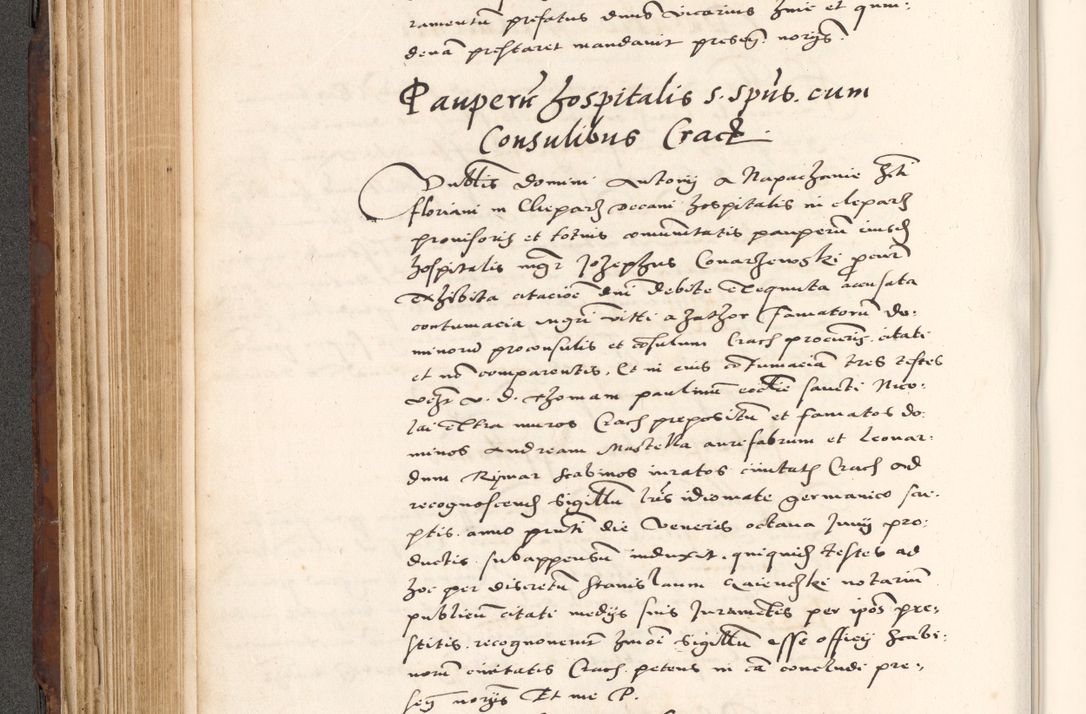 ramentum prefatus dnus vicarius hmoi et quin:
denam prestaret mandavit presen. noriis.
Pauperũ hospitalis s. spũs. cum
Consulibus Crac.
Venblis domini Antonij a Napachanie Sti
floriani in Cleparz decani hospitalis in cleparz
provisoris et totius comunitatis pauperum eiusdẽ
hospitalis mgr Jozephus Conarzewski
exhibita citacioẽ dni debite exequuta accusata
contumacia mgri viti a famatorum do:
minorũ proconsulis et cõsulum Crach procuris. citati
et nõ comparentis. Et in eius cõtumaciã tres testes
v. d. thomam paulinum ecclie sancti Nico:
lai extra muros Crach prepositũ et famatos do:
minos Andream Mastella aurifabrum et Leonar:
dum Rijmar scabinos iuratos civitatis Crach ad
recognoscend. sigillũ lris idiomate germanico scri:
ptis. anno pnti die Veneris octava Junij pro:
ductis. subappensũ induxit. quiquid. testes ad
hoc per discretũ Stanislaum notariũ
publicũ citati medijs suis Juramẽtis per ipõs pre:
stitis. recognoverunt hmoi sigillũ esse officij Scabi:
norũ civitatis Crach. petens in cã concludi pre:
sen noriis Et me P.